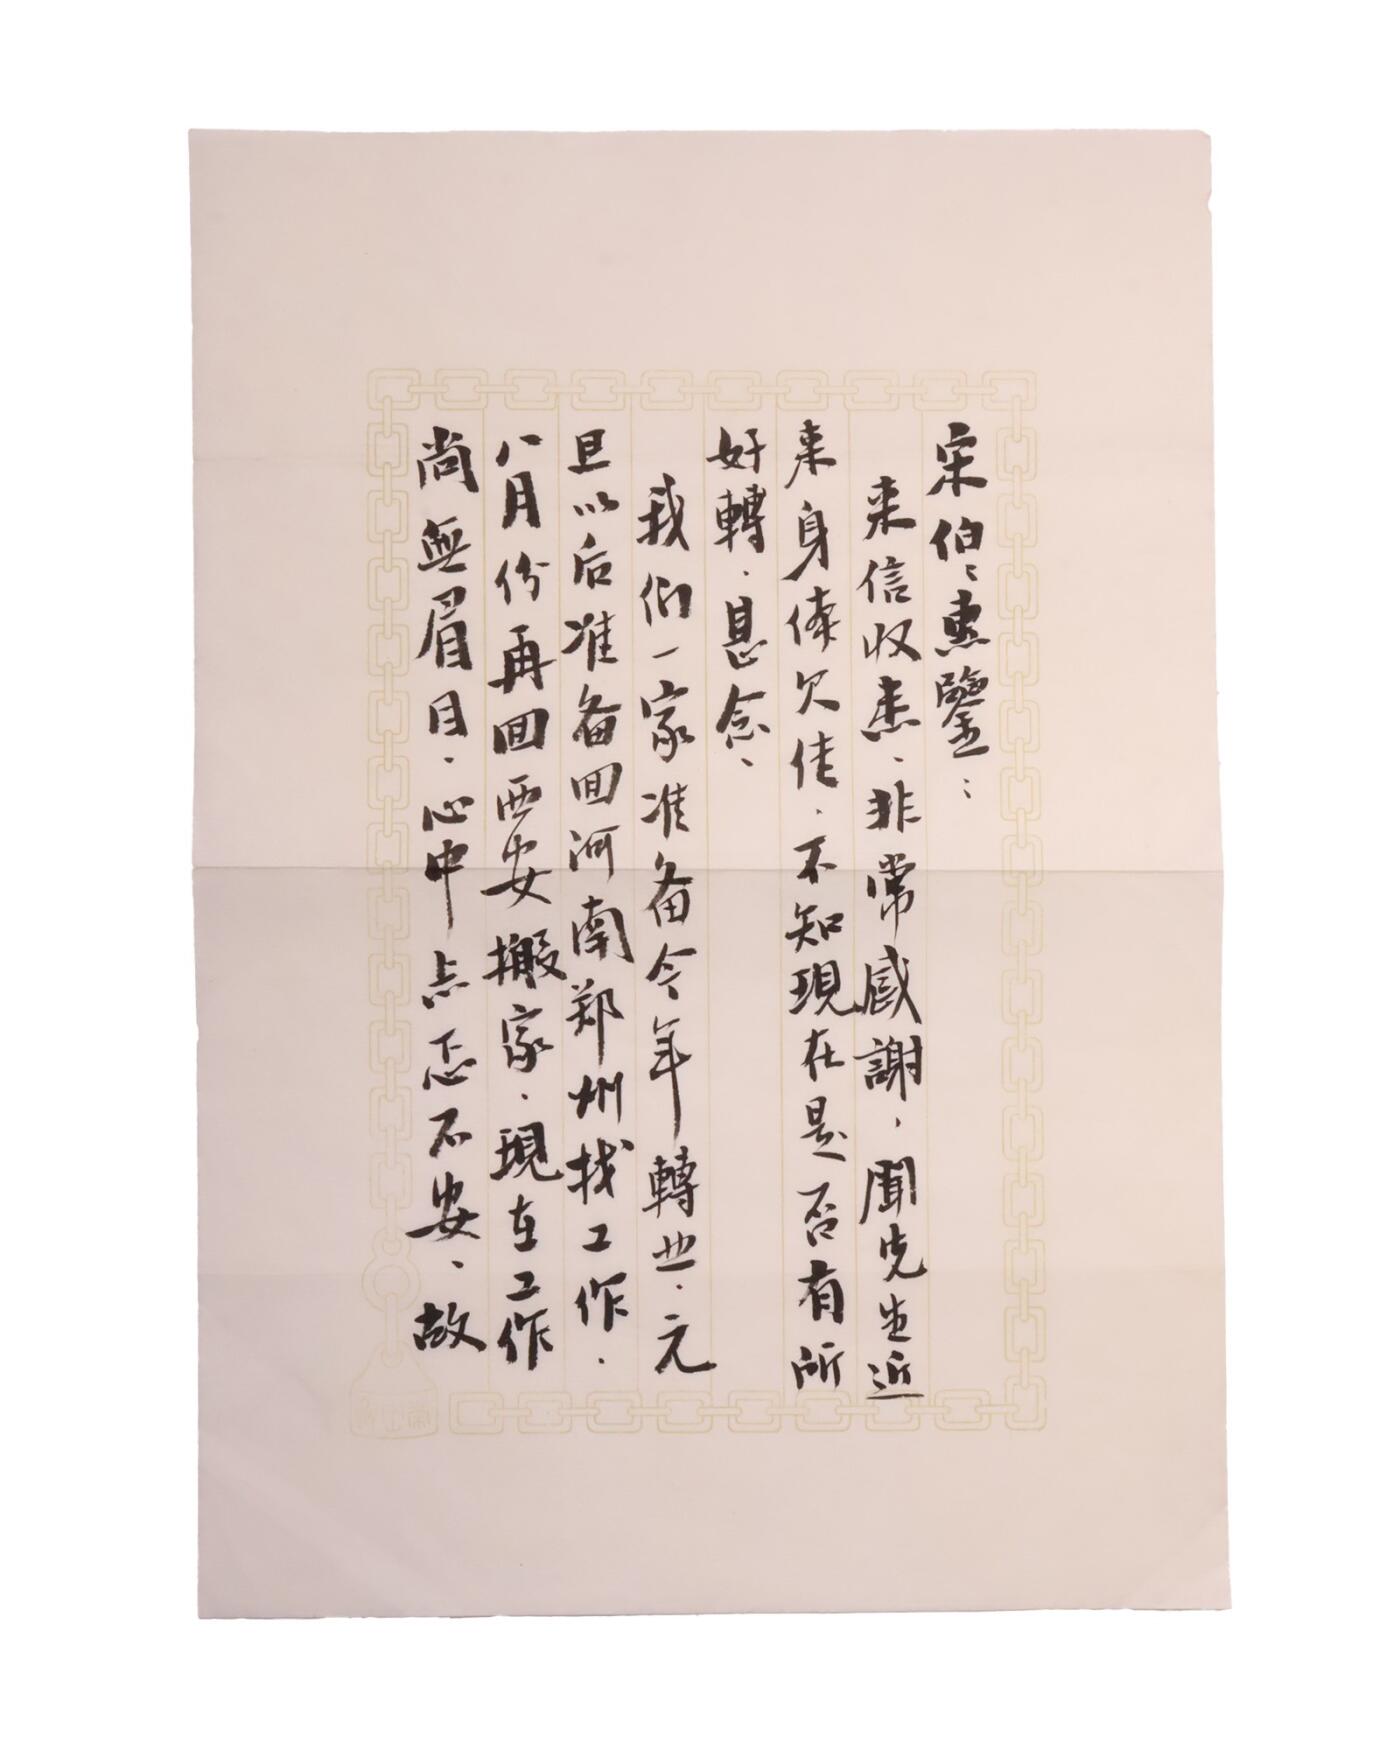 宋伯〻惠鑒：
来信收悉、非常感謝，聞先生近
来身体欠佳，不知現在是否有所
好轉，甚念、
我们一家准备今年轉业，元
旦以后准备回河南郑州找工作，
八月份再回西安搬家，現在工作
尚無眉目，心中忐忑不安、故